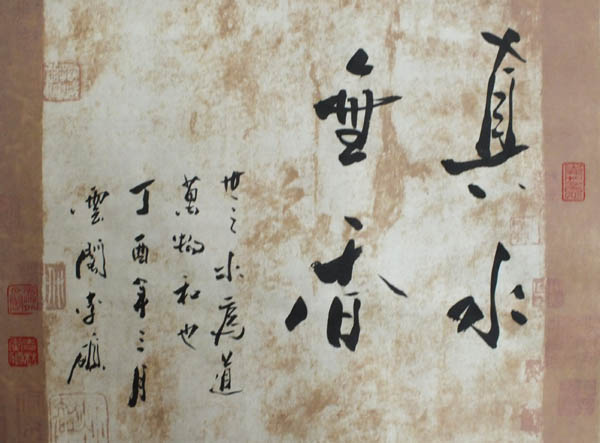 真水
無香
世之水為道
萬物和也
丁酉年三月
雲閣李